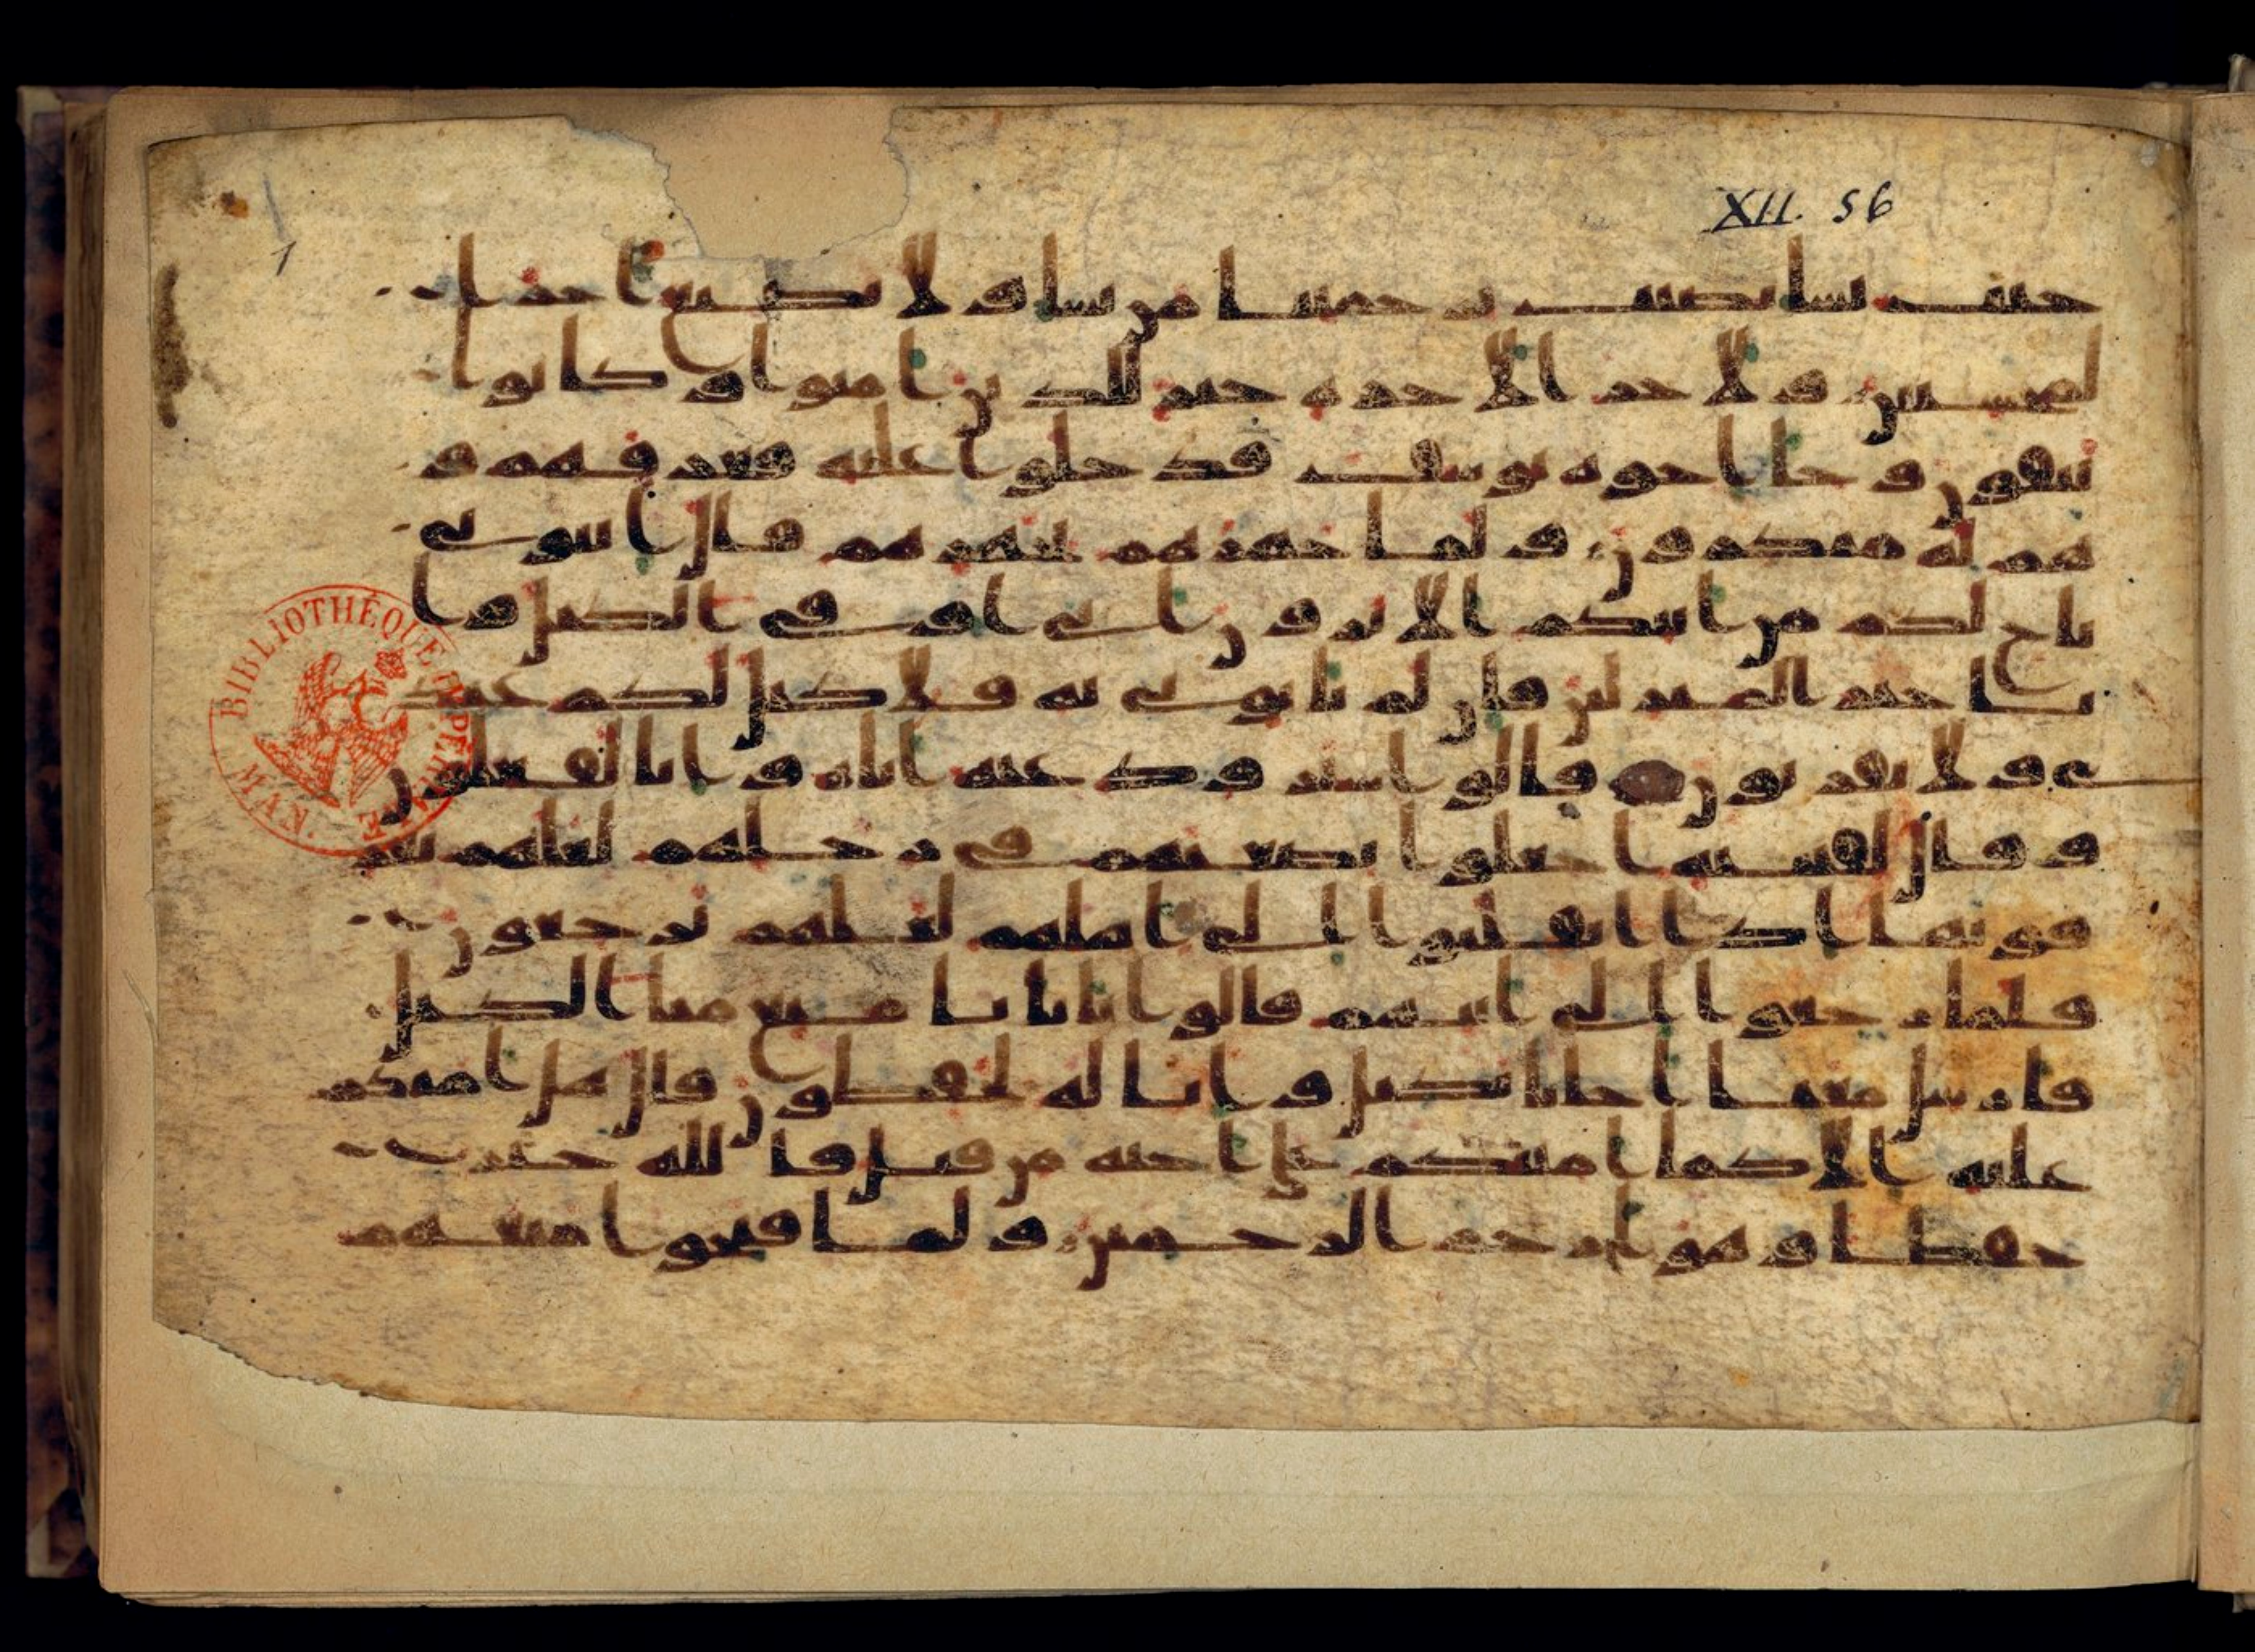 XII. 56
1
حيث يشا نصيب برحمتنا من نشا ولا نضيع اجر ا
لمحسنين ولاجر الاخرة خير للذين امنوا وكانوا
يتقون وجا اخوة يوسف فدخلوا عليه فعرفهم و
هم له منكرون ولما جهزهم بجهزهم قال ايتونى
باخ لكم من ابيكم الا ترون انى اوفى الكيل وا
نا خير المنزلين فان لم تاتونى به فلا كيل لكم عند
ى ولا تقربون قالوا سنرود عنه اباه وانا لفعلون
وقال لفتيته اجعلوا بضعتهم فى رحلهم لعلهم يعر
فونها اذا انقلبوا الى اهلهم لعلهم يرجعون
فلما رجعوا الى ابيهم قالوا يابانا منع منا الكيل
فارسل معنا اخانا نكتل وانا له لحفظون قال هل امنكم
عليه الا كما امنتكم على اخيه من قبل فالله خير
حفظا وهو ارحم الرحمين ولما فتحوا متعهم
BIBLIOTHÈQUE IMPÉRIALE